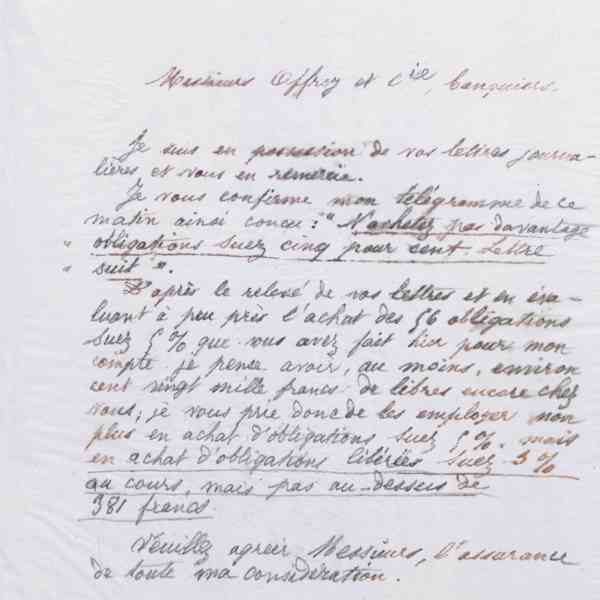 Messieurs Offroy et Cie, banquiers.
Je suis en possession de vos lettres journa-
lières et vous en remercie.
Je vous confirme mon télégramme de ce
matin ainsi conçu: "N'achetez pas davantage
" obligations Suez cinq pour cent. Lettre
" suit".
D'après le relevé de vos lettres et en éva-
luant à peu près l'achat des 56 obligations
Suez 5% que vous avez fait hier pour mon
compte je pense avoir, au moins, environ
cent vingt mille francs de libres encore chez
vous; je vous prie donc de les employer non
plus en achat d'obligations Suez 5%. mais
en achat d'obligations libérées Suez 3%
au cours, mais pas au-dessus de
381 francs.
Veuillez agréer, Messieurs, l'assurance
de toute ma considération.